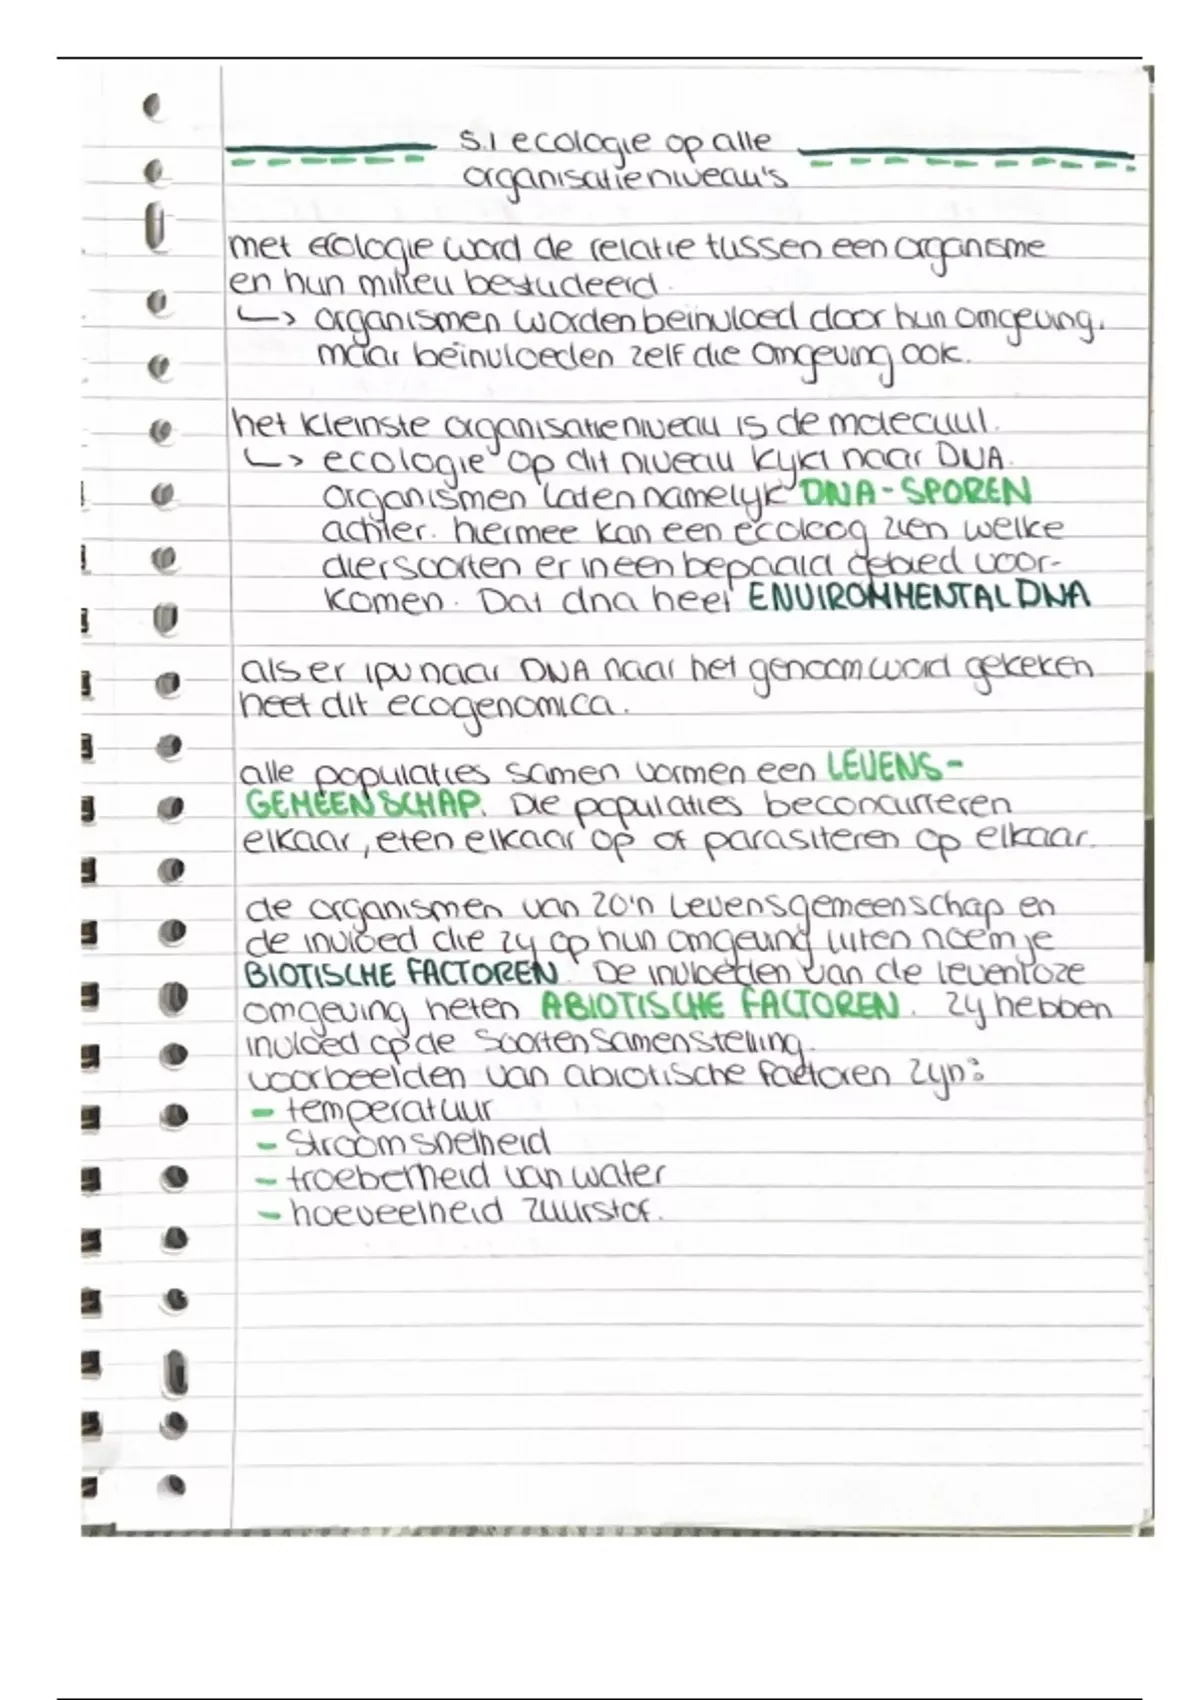 5.1 ecologie op alle
organisatieniveau's
met ecologie word de relatie tussen een organisme
en hun milieu bestudeerd.
↳ organismen worden beïnvloed door hun omgeving,
maar beïnvloeden zelf die omgeving ook.
het kleinste organisatieniveau is de molecuul.
↳ ecologie op dit niveau kijkt naar DNA.
organismen laten namelijk DNA-SPOREN
achter. hiermee kan een ecoloog zien welke
diersoorten er in een bepaald gebied voor-
komen. Dat dna heet ENVIRONMENTAL DNA
als er ipv naar DNA naar het genoom word gekeken
heet dit ecogenomica.
alle populaties samen vormen een LEVENS-
GEMEENSCHAP. Die populaties beconcurreren
elkaar, eten elkaar op of parasiteren op elkaar.
de organismen van zo'n levensgemeenschap en
de invloed die zij op hun omgeving uiten noem je
BIOTISCHE FACTOREN. De invloeden van de levenloze
omgeving heten ABIOTISCHE FACTOREN. Zij hebben
invloed op de soortensamenstelling.
voorbeelden van abiotische factoren zijn:
- temperatuur
- stroomsnelheid
- troebelheid van water
- hoeveelheid zuurstof.